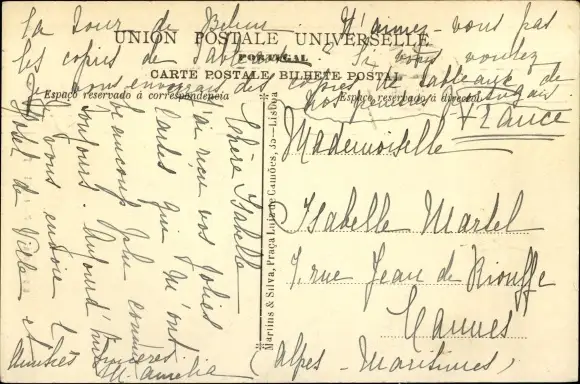 La Tour de Belem. N'aimez-vous pas
les copies de tableaux? Si vous voulez
je vous enverrais des copies de tableaux de
nos peintres Portugais
UNION POSTALE UNIVERSELLE
PORTUGAL
CARTE POSTALE - BILHETE POSTAL
Espaço reservado á correspondencia
Espaço reservado á direcção
Chère Isabelle
J'ai reçu vos jolies
cartes qui m'ont
beaucoup plu comme
toujours. Aujourd'hui
je vous envoie l'
Hotel de Ville et
Amitiés sincères.
M. Amelia
Martins & Silva, Praça Luiz de Camões, 35—Lisboa
France
Mademoiselle
Isabelle Martel
7, rue Jean de Riouffe
Cannes
(Alpes-Maritimes)